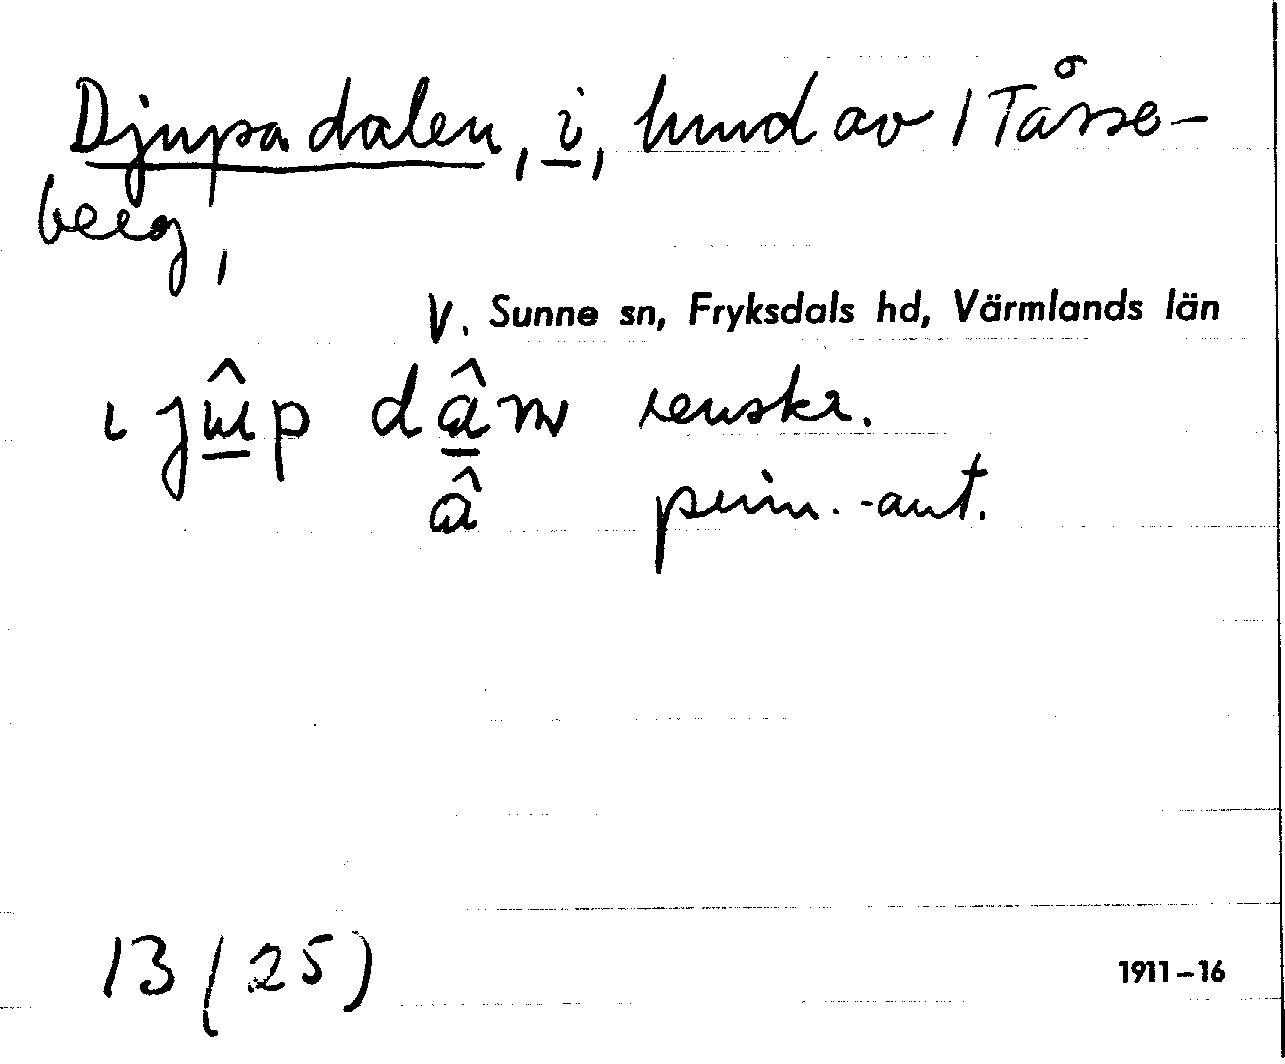 Djupadalen, i, hmd av 1 Tåsse-
berg,
V. Sunne sn, Fryksdals hd, Värmlands län
ɩ jûp dâm renskr.
â prim.-ant.
13 (25)
1911-16